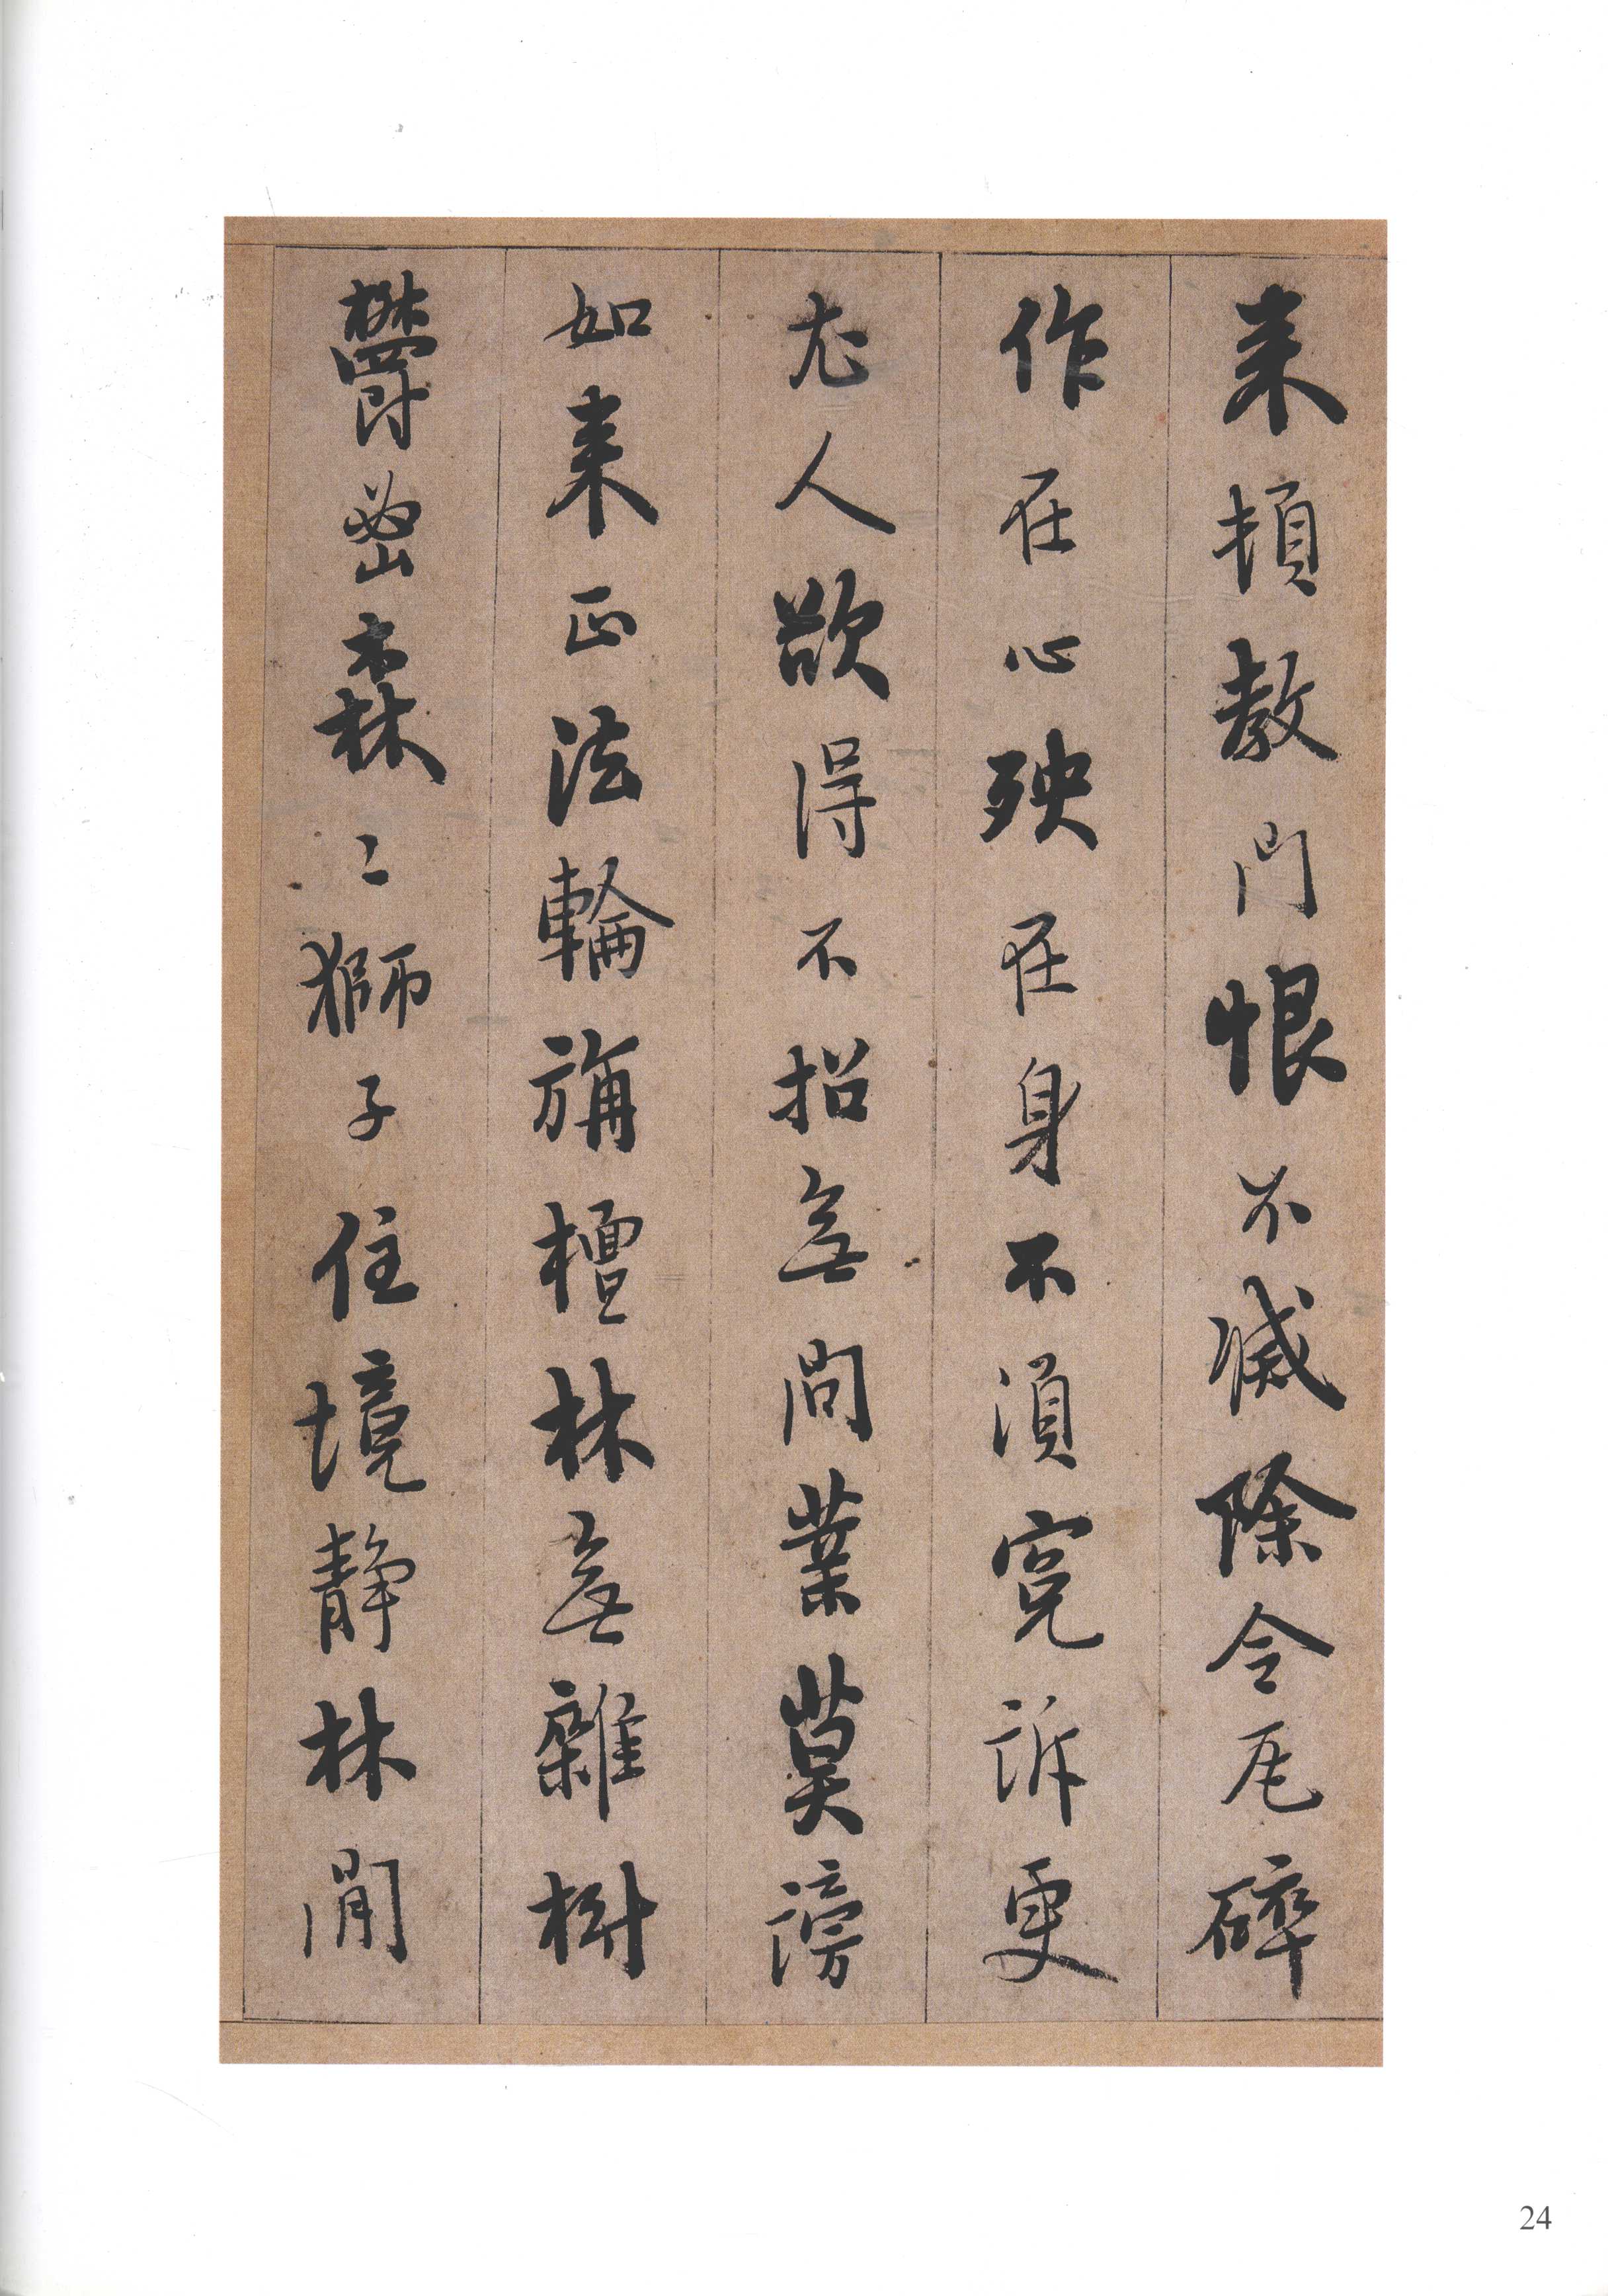 来頓教門恨不滅除令瓦碎
作在心殃在身不須寃訴更
尤人欲得不招無間業莫謗
如来正法輪旃檀林無雜樹
鬱密森〻獅子住境静林閒
24